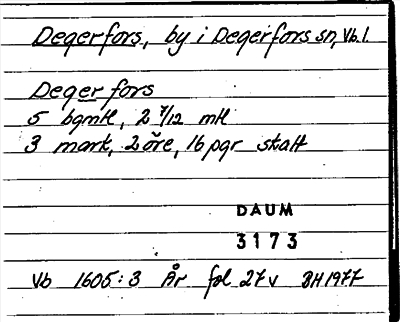 Degerfors, by i Degerfors sn, Vb. l.
Degerfors
5 bgmtl, 2 7/12 mtl
3 mark, 2 öre, 16 pgr skatt
DAUM
3173
Vb 1605:3 År fol 27v BH1977